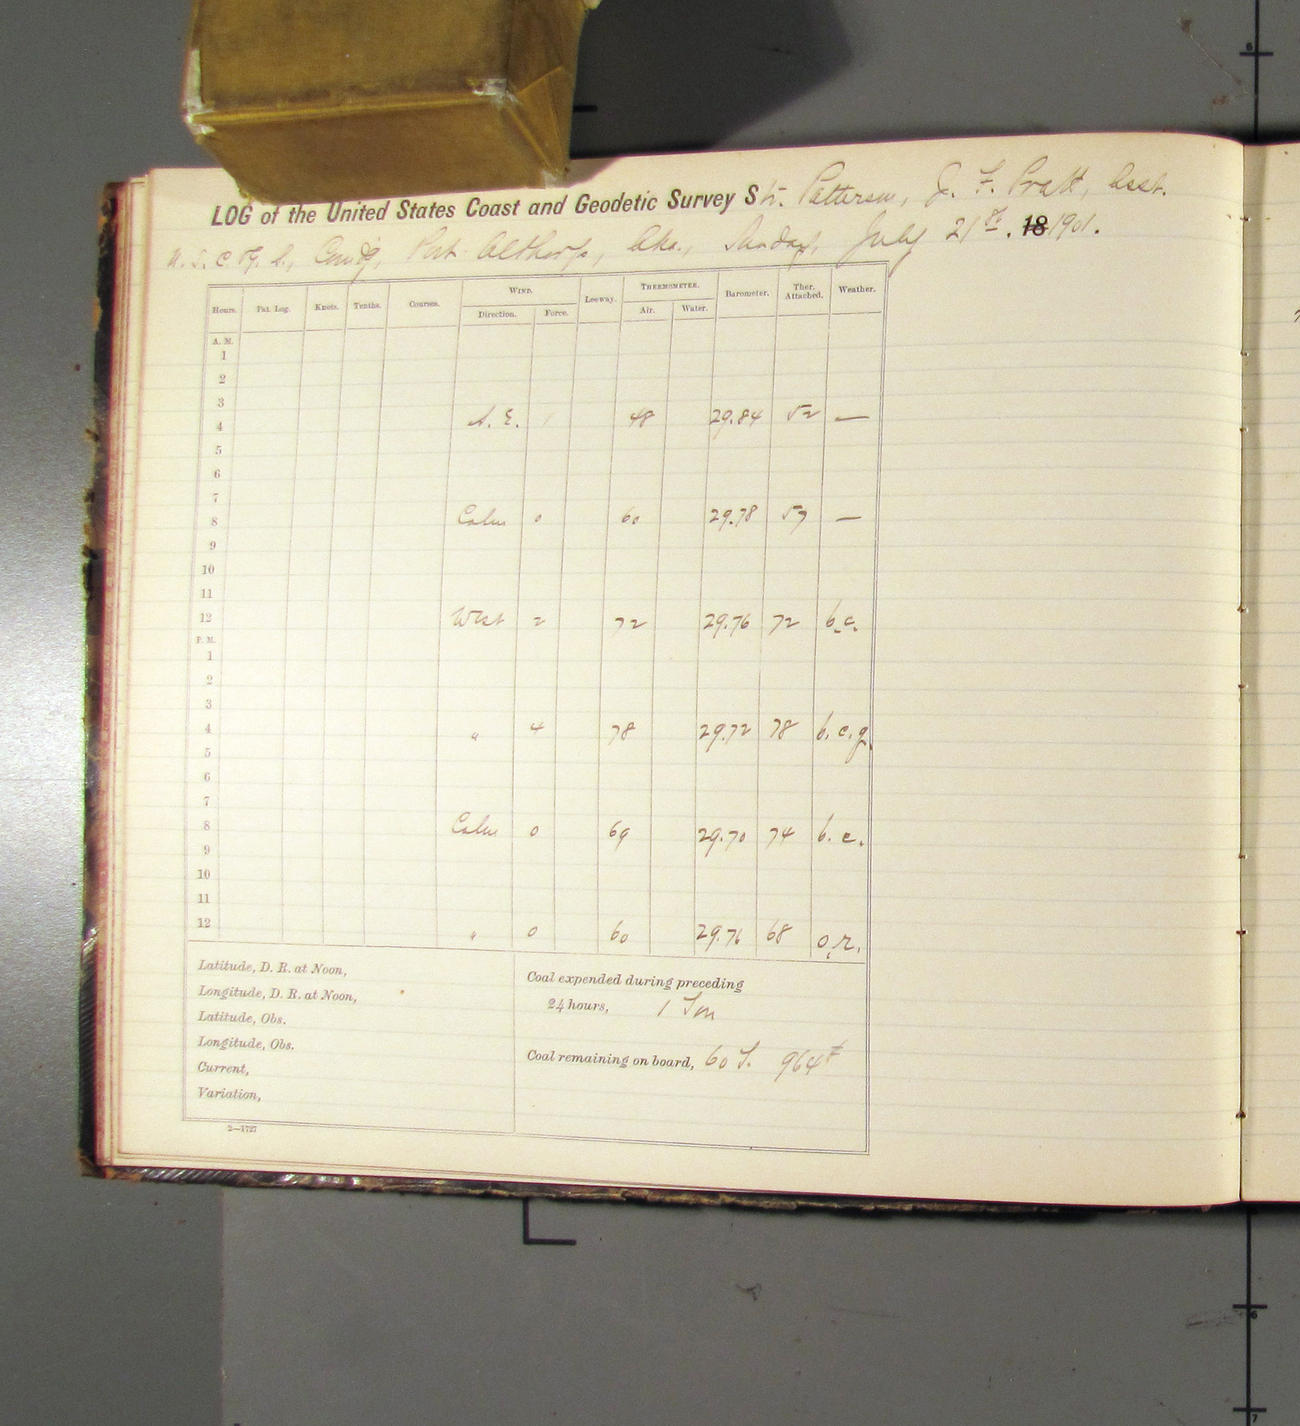 LOG of the United States Coast and Geodetic Survey Str. Patterson, J. F. Pratt, Asst.
U. S. C. & G. S., Comd'g, Port Althorp, Aka., Sunday, July 21st. 18 1901.
Hours. Pat. Log. Knots. Tenths. Courses. WIND. Leeway. THERMOMETER. Barometer. Ther. Attached. Weather.
Direction. Force. Air. Water.
A. M.
1
2
3
4 S. E. 1 48 29.84 52 —
5
6
7
8 Calm 0 60 29.78 57 —
9
10
11
12 West 2 72 29.76 72 b.c.
P. M.
1
2
3
4 " 4 78 29.72 78 b.c.q.
5
6
7
8 Calm 0 69 29.70 74 b.c.
9
10
11
12 " 0 60 29.76 68 o,r.
Latitude, D. R. at Noon,
Longitude, D. R. at Noon,
Latitude, Obs.
Longitude, Obs.
Current,
Variation,
Coal expended during preceding
24 hours, 1 Ton
Coal remaining on board, 60 T. 964#
2—1727
6
6
7